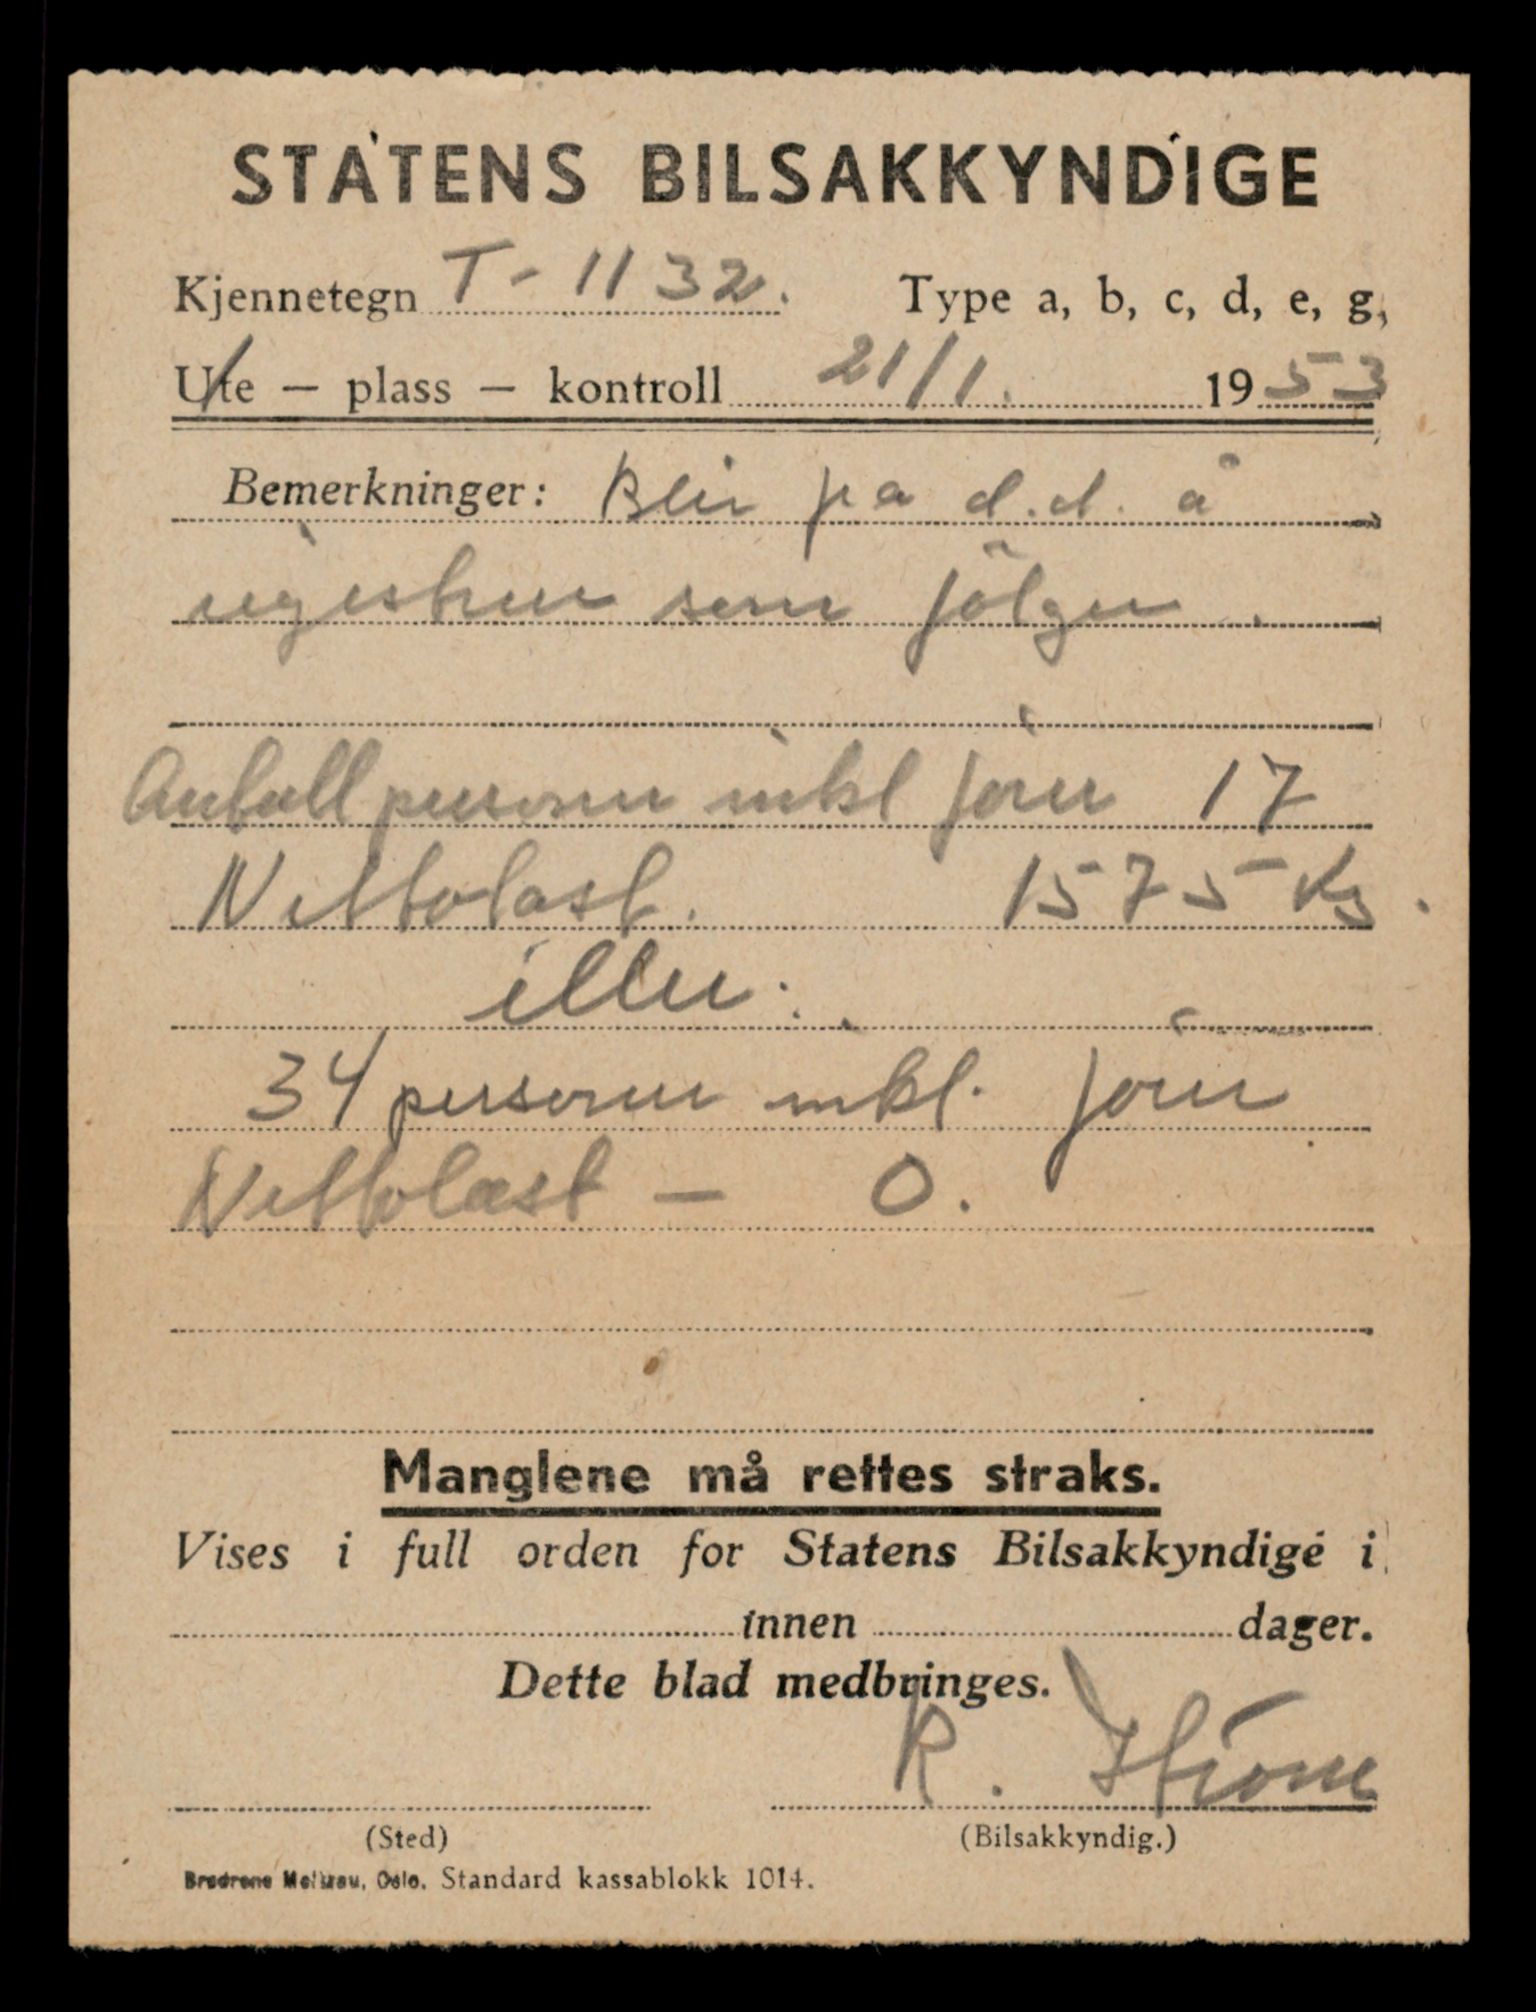 STATENS BILSAKKYNDIGE
Kjennetegn T - 1132. Type a, b, c, d, e, g,
Ute — plass — kontroll 21/1. 1953
Bemerkninger: Blir på d.d. å
registrere som fölger.
Antall personer inkl förer 17
Nettolast. 1575 Kg.
eller:
34 personer inkl. förer
Nettolast — 0.
Manglene må rettes straks.
Vises i full orden for Statens Bilsakkyndige i
innen dager.
Dette blad medbringes.
R.
(Sted) (Bilsakkyndig.)
Brødrene Oslo. Standard kassablokk 1014.